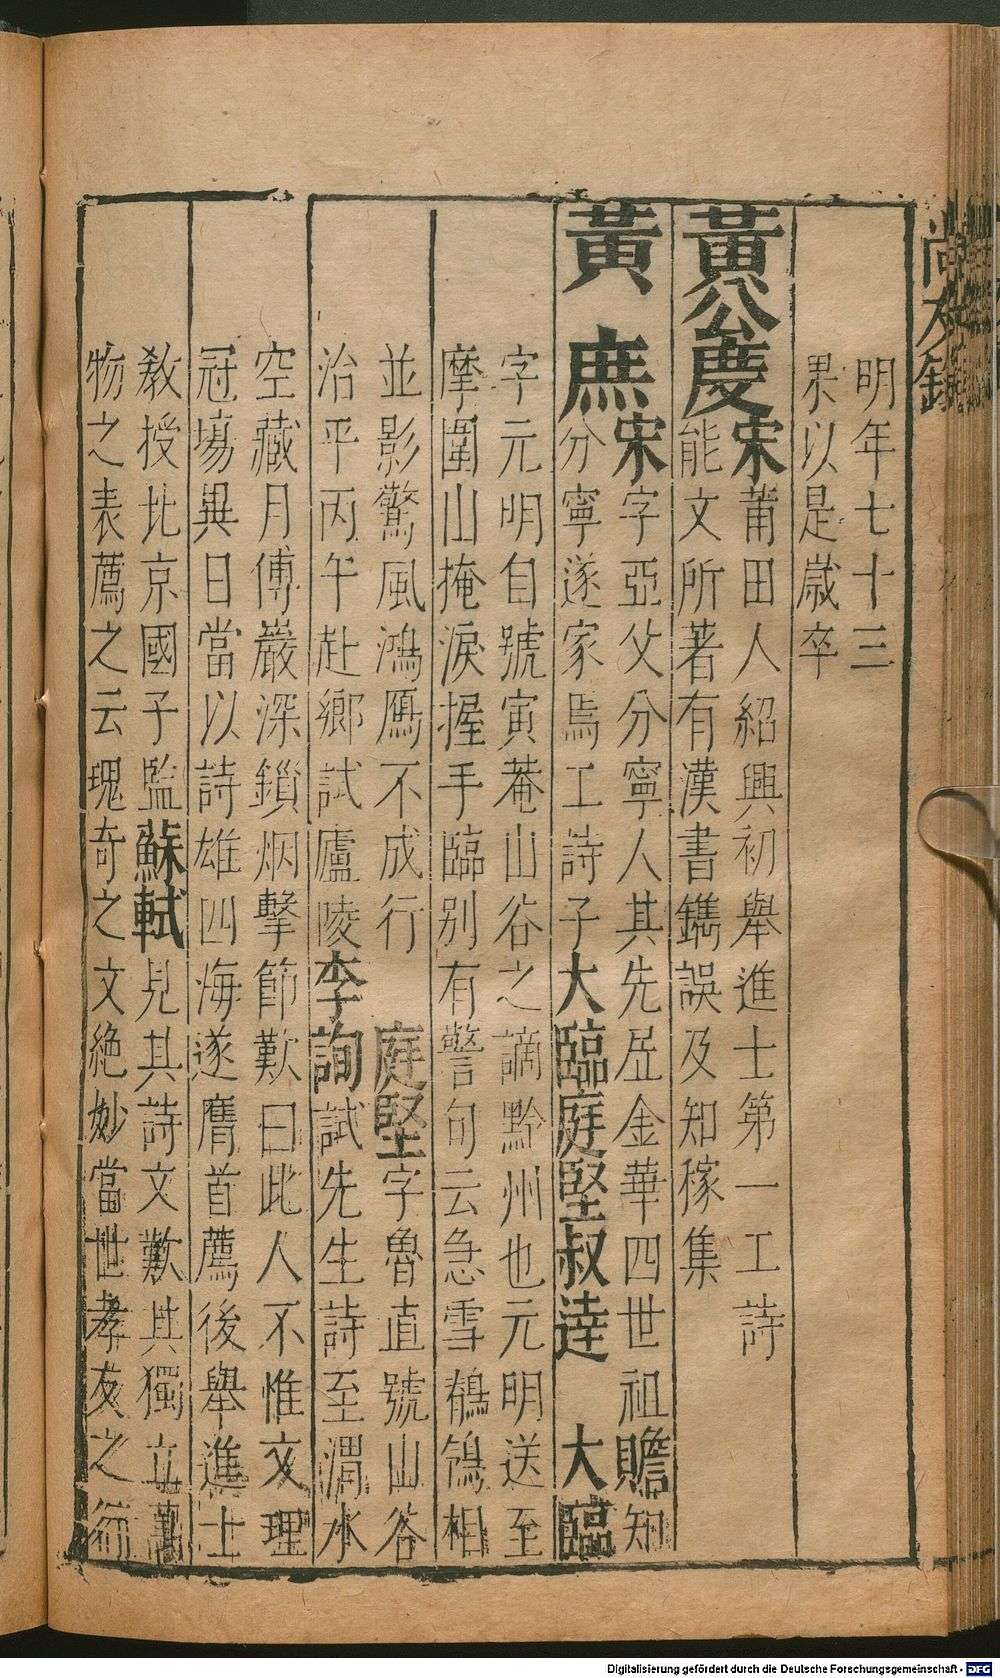 明年七十三
果以是歲卒
黃公慶宋莆田人紹興初舉進士第一工詩
能文所著有漢書鐫誤及知稼集
黃庶宋字亞父分寧人其先居金華四世祖贍知
分寧遂家焉工詩子大臨庭堅叔達 大臨
字元明自號寅菴山谷之謫黔州也元明送至
摩圍山掩淚握手臨別有警句云急雪鶺鴒相
並影驚風鴻鴈不成行 庭堅字魯直號山谷
治平丙午赴鄉試廬陵李詢試先生詩至渭水
空藏月傅巖深鎖烟擊節歎曰此人不惟文理
冠場異日當以詩雄四海遂膺首薦後舉進士
教授北京國子監蘇軾見其詩文歎其獨立萬
物之表薦之云瑰奇之文絶妙當世孝友之行
Digitalisierung gefördert durch die Deutsche Forschungsgemeinschaft - DFG